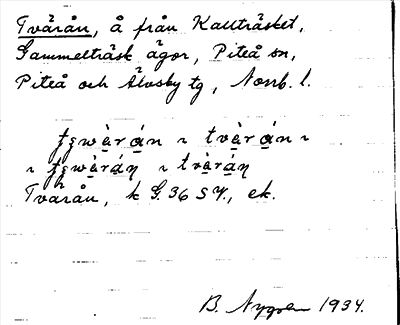 Tvärån, å från Kallträsket,
Gammelträsk ägor, Piteå sn,
Piteå och Älvsby tg, Norrb. l.
tvàrán
tvàráŋ
Tvärån, k G. 36 SV., ek.
B. Nygren 1934.